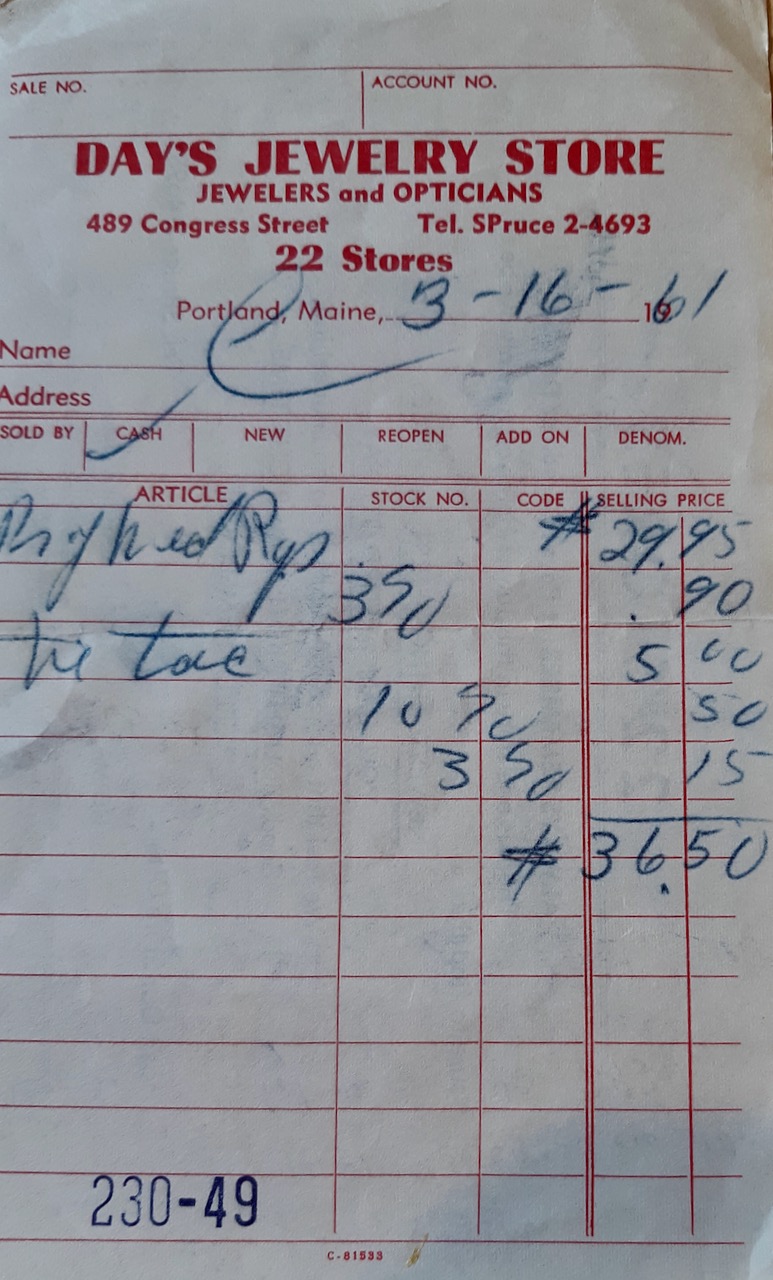 SALE NO. ACCOUNT NO.
DAY'S JEWELRY STORE
JEWELERS and OPTICIANS
489 Congress Street Tel. SPruce 2-4693
22 Stores
Portland, Maine, 3-16- 1961
Name
Address
SOLD BY CASH NEW REOPEN ADD ON DENOM.
ARTICLE STOCK NO. CODE SELLING PRICE
$29.95
3% .90
tie tac 5 00
10% 50
3% 15
$36.50
230-49
C-81533